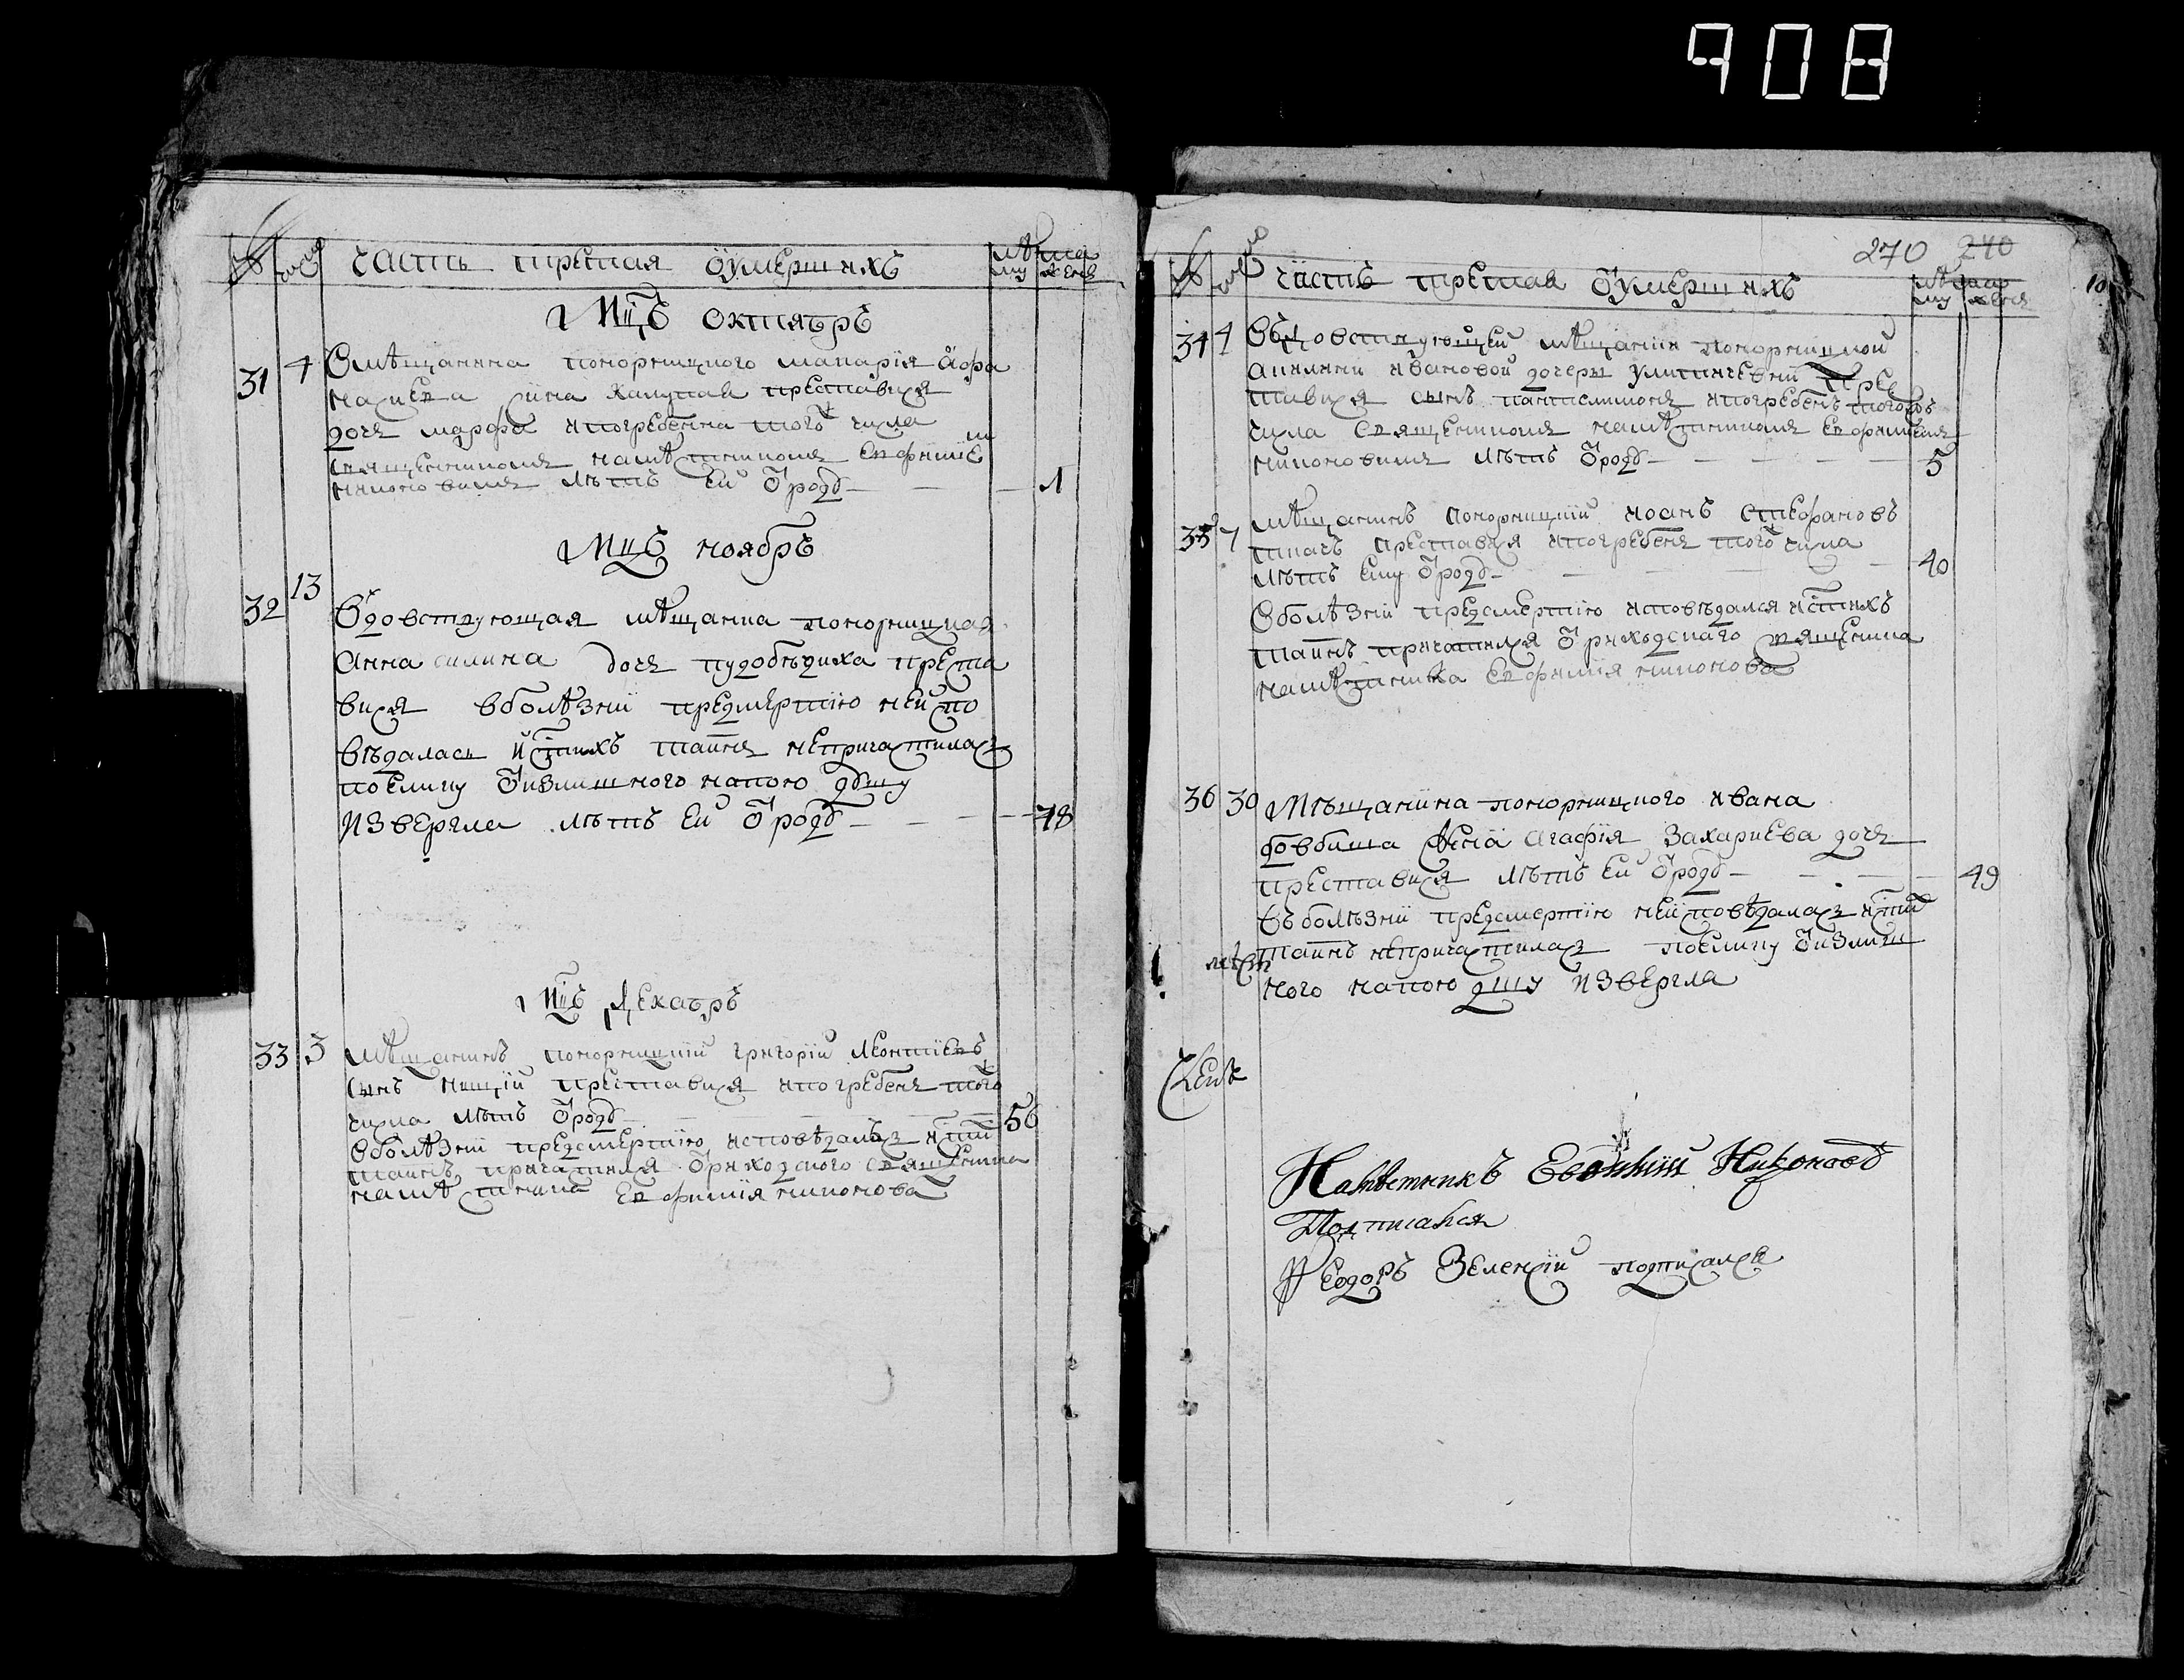 908
№ число часть третая ѿ умершихъ лѣта
му жен
Мцъ октябрь
31 4 Ѿ мѣщанина понорницкого макарія афа
насиева сина халупав преставися
дочя марфа и погребенна того числа
священникомя намѣстникомя Евфиміем
никоновимя лѣтъ ей ѿ родб 1
Мцъ ноябрь
32 13
Вдовствующая мѣщанка понорницкая
Анна силина дочя преста
вися в болѣзни предсмертню не испо
вѣдалась и стихъ таинъ непричастилас
поелику ѿ излишного напою дшу
извергла лѣтъ ей ѿ родб 78
Мцъ Декабрь
33 3 Мѣщанинъ понорницкій григорій леонтіевъ
синъ нищій преставися и погребеня того
числа лѣтъ ѿ родб 56
В болѣзни предсмертню исповѣдался и стих
таинъ причастился ѿ приходского священика
намѣстника Евфимія никонова
270 240
№ число часть третая ѿ умершихъ лѣта
му женск
10
34 4 Вдовствующей мѣщанки понорницкой
ивановой дочери пре
ставися синъ пантелимоня и погребенъ тогожъ
числа священникомя намѣстникомя Евфиміемя
никоновимя лѣтъ ѿ родб 5
35 7 Мѣщанинъ понорницкій иоанъ стефановъ
ткачъ преставися и погребеня того числа
лѣтъ ему ѿ родб 40
В болѣзни предсмертню исповѣдался и стихъ
таинъ причастился ѿ приходскаго священика
намѣстника Евфимія никонова
36 30 Мѣщанина понорницкого ивана
довбиша жена агафія Захариева дочя
преставися лѣтъ ей ѿ родб 49
въ болѣзни предсмертню не исповѣдалас и стих
таинъ непричастилас поелику ѿ излиш
ного напою дшу извергла
Намѣстникъ Евфимій Никоновъ
Подписался
Феодоръ Зеленскій подписался